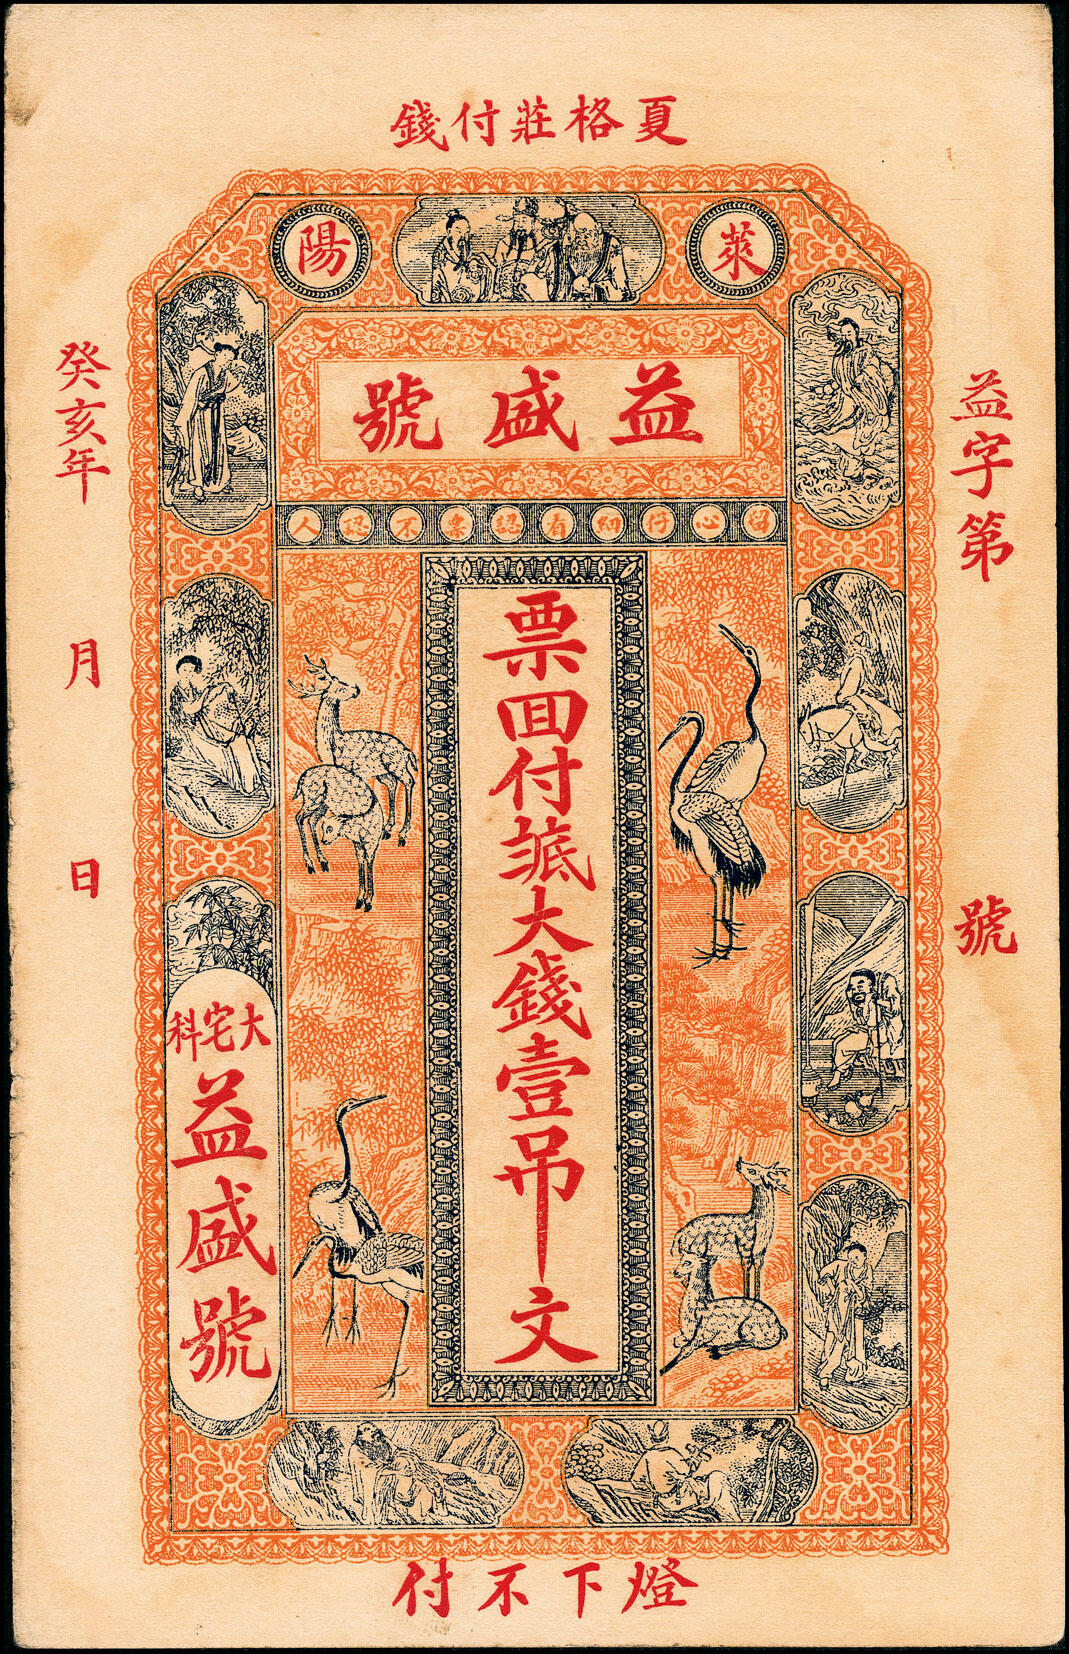 夏格莊付錢
萊陽
益盛號
留心仔細看認票不認人
益字第 號
票囬付 大錢壹吊文
大宅科
益盛號
癸亥年 月 日
燈下不付